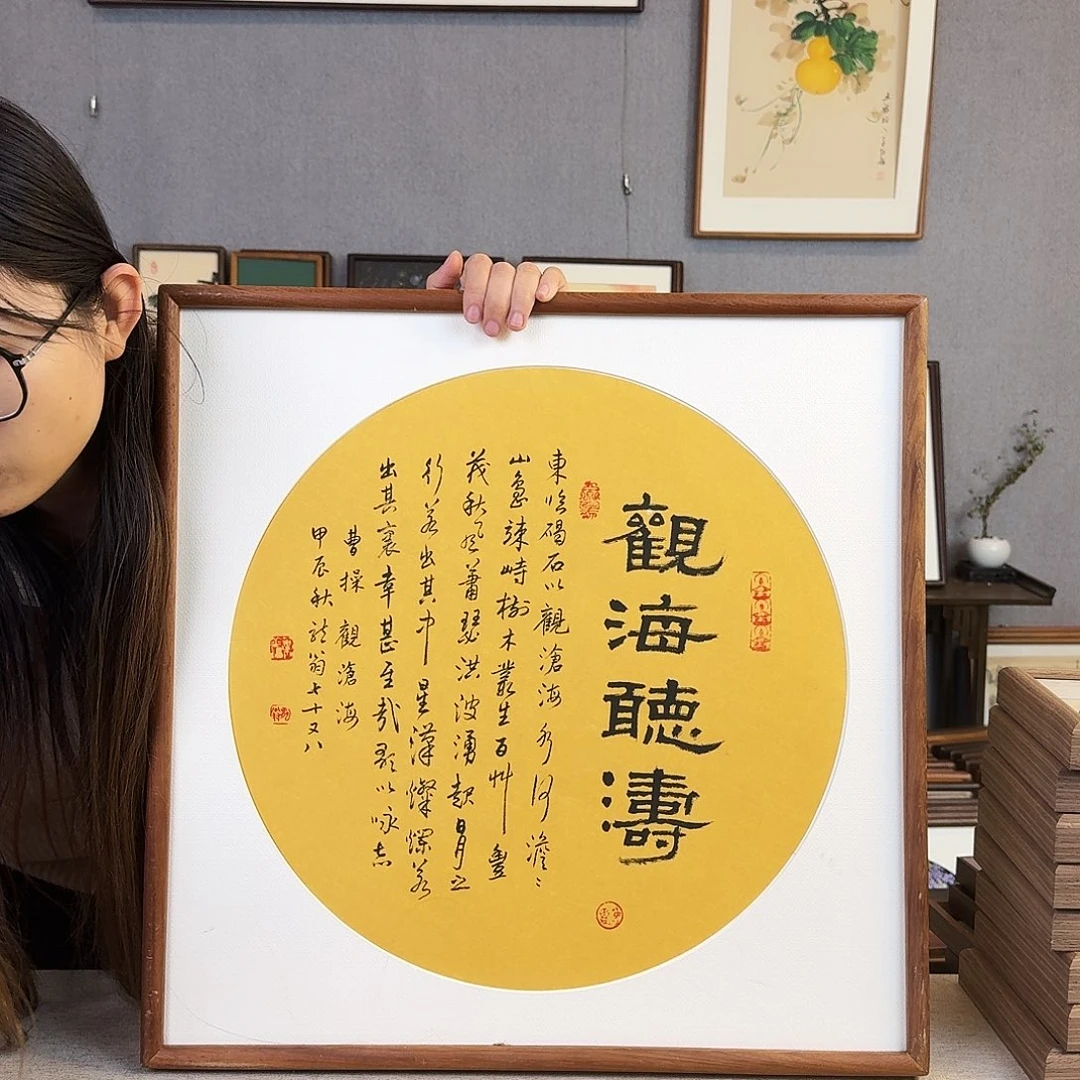 觀海聽濤
東臨碣石以觀滄海水何澹〻
山島竦峙樹木叢生百艸豐
茂秋風蕭瑟洪波湧起日月之
行若出其中星漢燦爛若
出其裏幸甚至哉歌以咏志
曹操觀滄海
甲辰秋翁七十又八